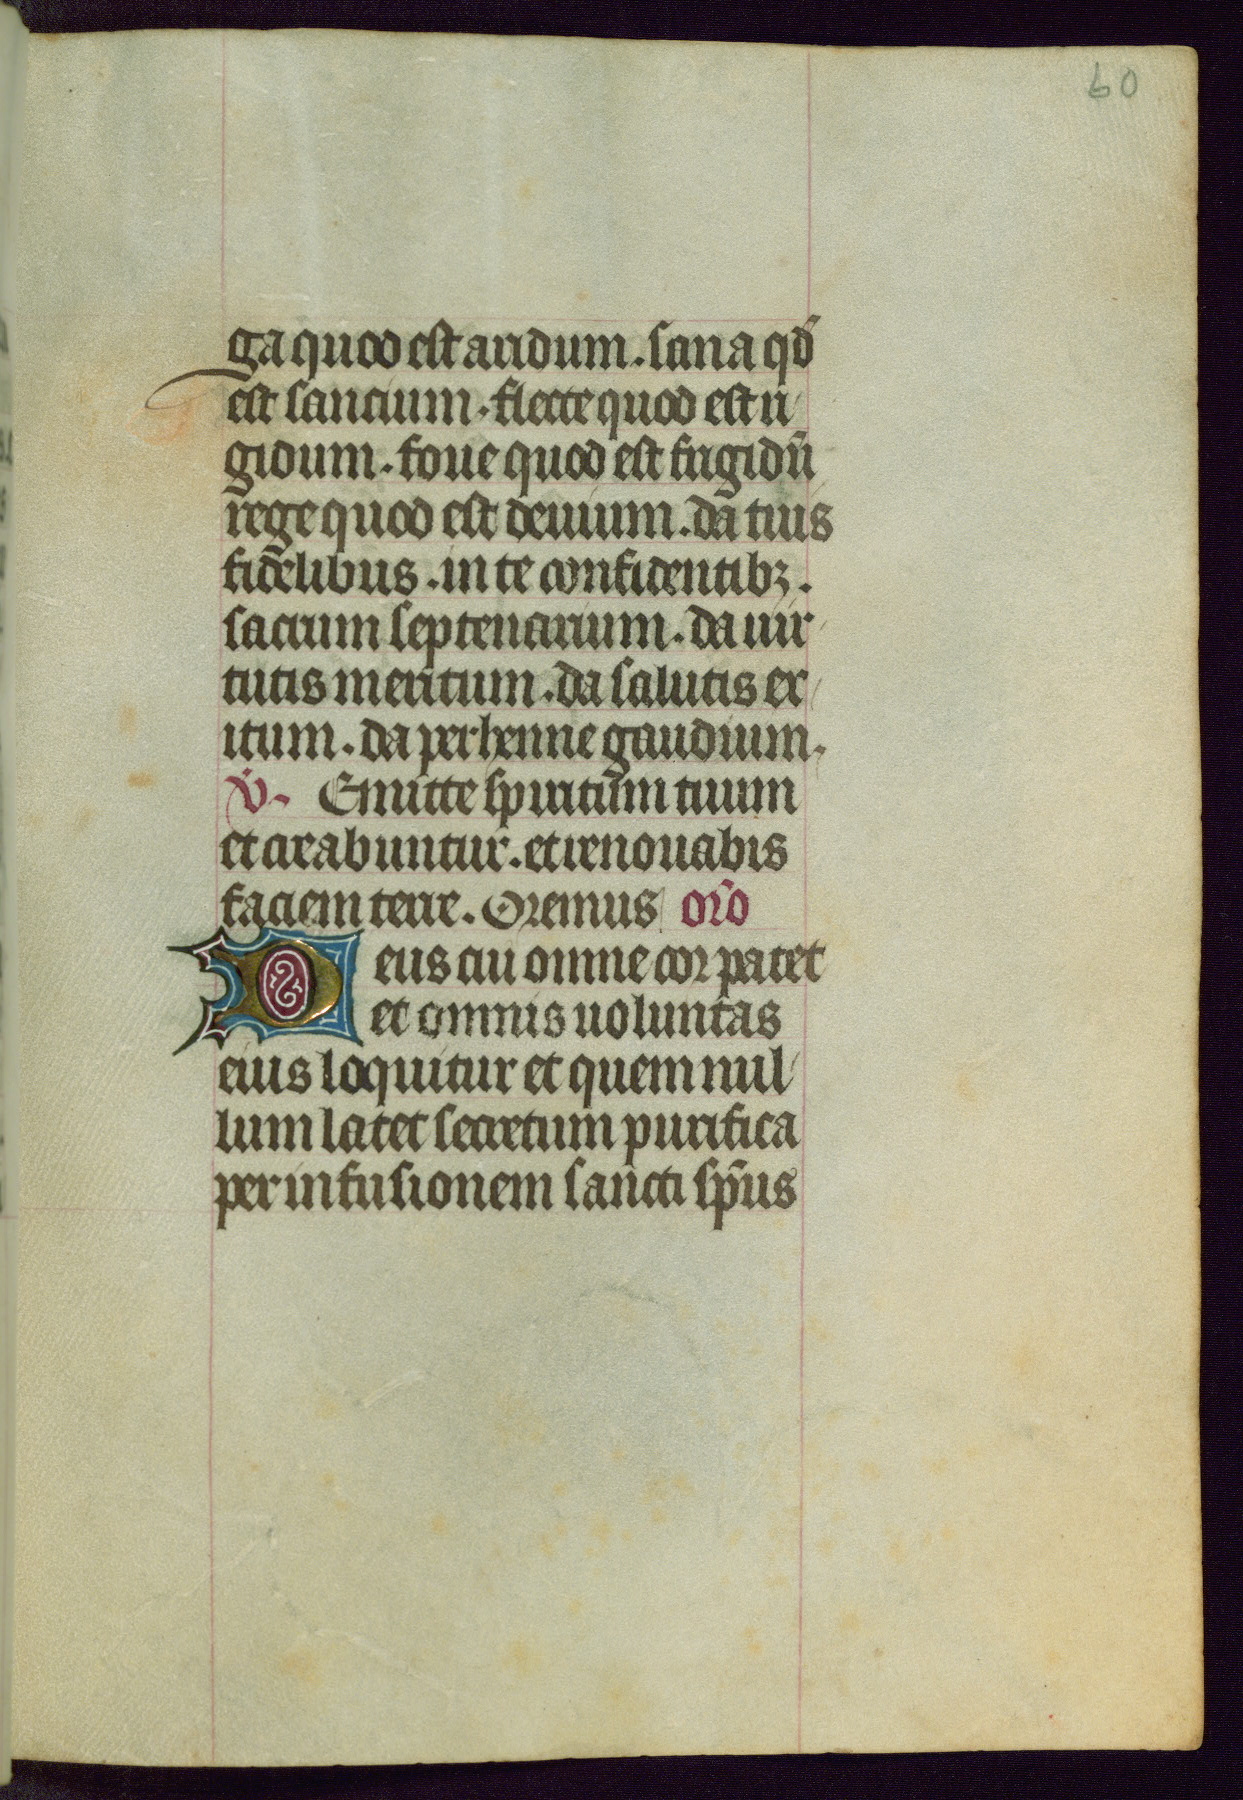 60
ga quod est aridum. sana qd̄
est sancium. flecte quod est ri
gidum. foue quod est frigidū
rege quod est deuium. da tuis
fidelibus. in te confidentibꝫ.
sacrum septenarium. da uir
tutis meritum. da salutis ex
itum. da perhenne gaudium.
V̇. Emitte spiritum tuum
et creabuntur. et renouabis
faciem terre. Oremus or̄o
Deus cui omne cor patet
et omnis uoluntas
eius loquitur et quem nul
lum latet secretum purifica
per infusionem sancti sp̄us